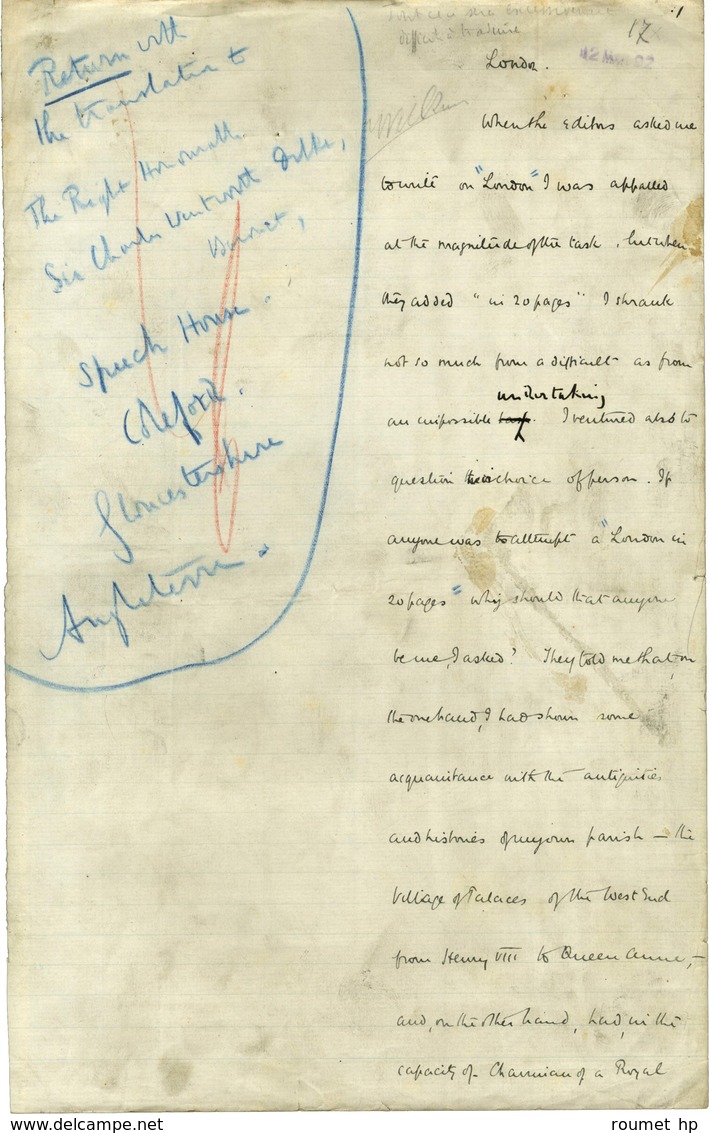 difficile à traduire
17
12 Mai 92
London.
Return with
the translation to
The Right Honourable
Sir Charles Wentworth Dilke,
Baronet,
Speech House.
Coleford.
Gloucestershire
Angleterre.
When the Editors asked me
to write on "London" I was appalled
at the magnitude of the task, but when
they added "in 20 pages" I shrank
not so much from a difficult as from
undertaking
an impossible task. I ventured also to
question their choice of person. If
anyone was to attempt a "London in
20 pages" why should that anyone
be me, I asked? They told me that, on
the one hand, I had shown some
acquaintance with the antiquities
and histories of my own parish — the
Village of Palaces of the West End
from Henry VIII to Queen Anne, —
and, on the other hand, had, in the
capacity of Chairman of a Royal
roumet hp